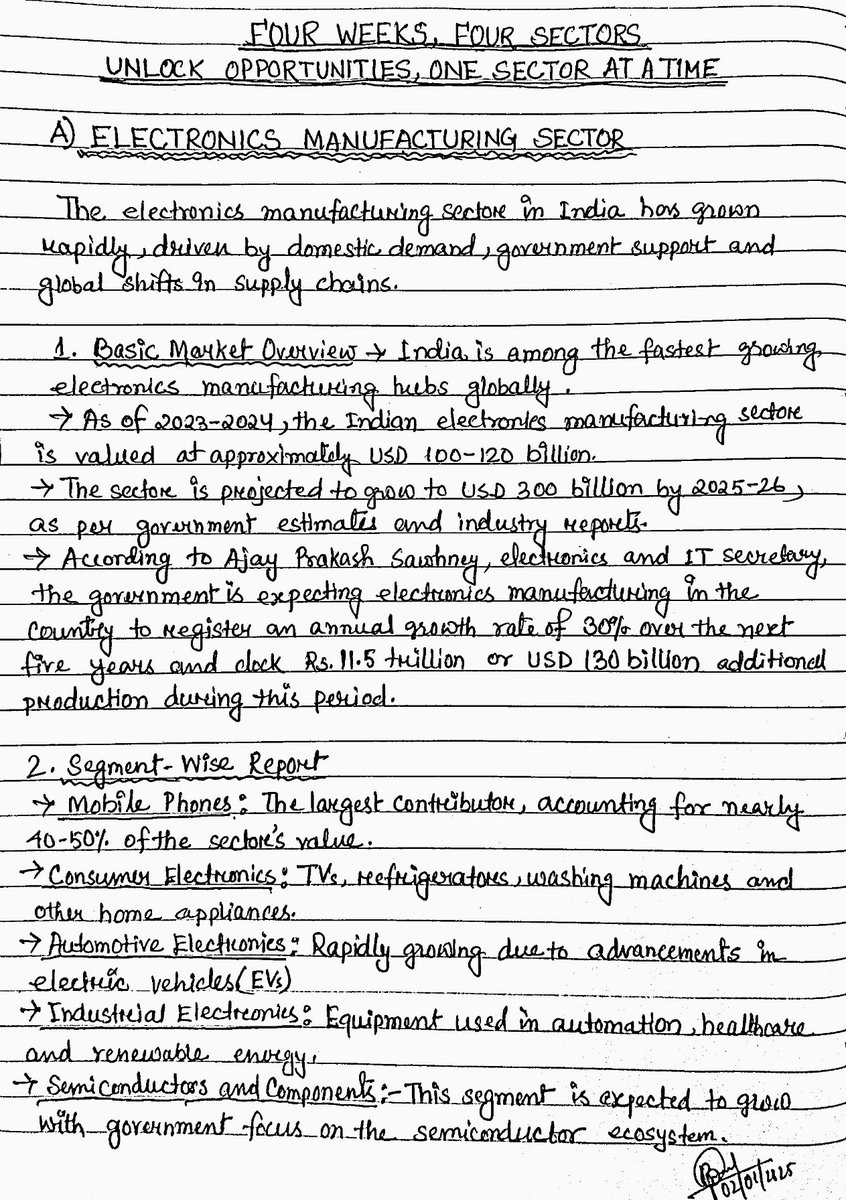 FOUR WEEKS, FOUR SECTORS
UNLOCK OPPORTUNITIES, ONE SECTOR AT A TIME
A) ELECTRONICS MANUFACTURING SECTOR
The electronics manufacturing sector in India has grown
rapidly, driven by domestic demand, government support and
global shifts in supply chains.
1. Basic Market Overview → India is among the fastest growing
electronics manufacturing hubs globally.
→ As of 2023-2024, the Indian electronics manufacturing sector
is valued at approximately USD 100-120 billion.
→ The sector is projected to grow to USD 300 billion by 2025-26,
as per government estimates and industry reports.
→ According to Ajay Prakash Sawhney, electronics and IT secretary,
the government is expecting electronics manufacturing in the
country to register an annual growth rate of 30% over the next
five years and clock Rs. 11.5 trillion or USD 130 billion additional
production during this period.
2. Segment-Wise Report
→ Mobile Phones: The largest contributor, accounting for nearly
40-50% of the sector's value.
→ Consumer Electronics: TVs, refrigerators, washing machines and
other home appliances.
→ Automotive Electronics: Rapidly growing due to advancements in
electric vehicles (EVs)
→ Industrial Electronics: Equipment used in automation, healthcare
and renewable energy.
→ Semiconductors and Components:- This segment is expected to grow
with government focus on the semiconductor ecosystem.
02/01/2025